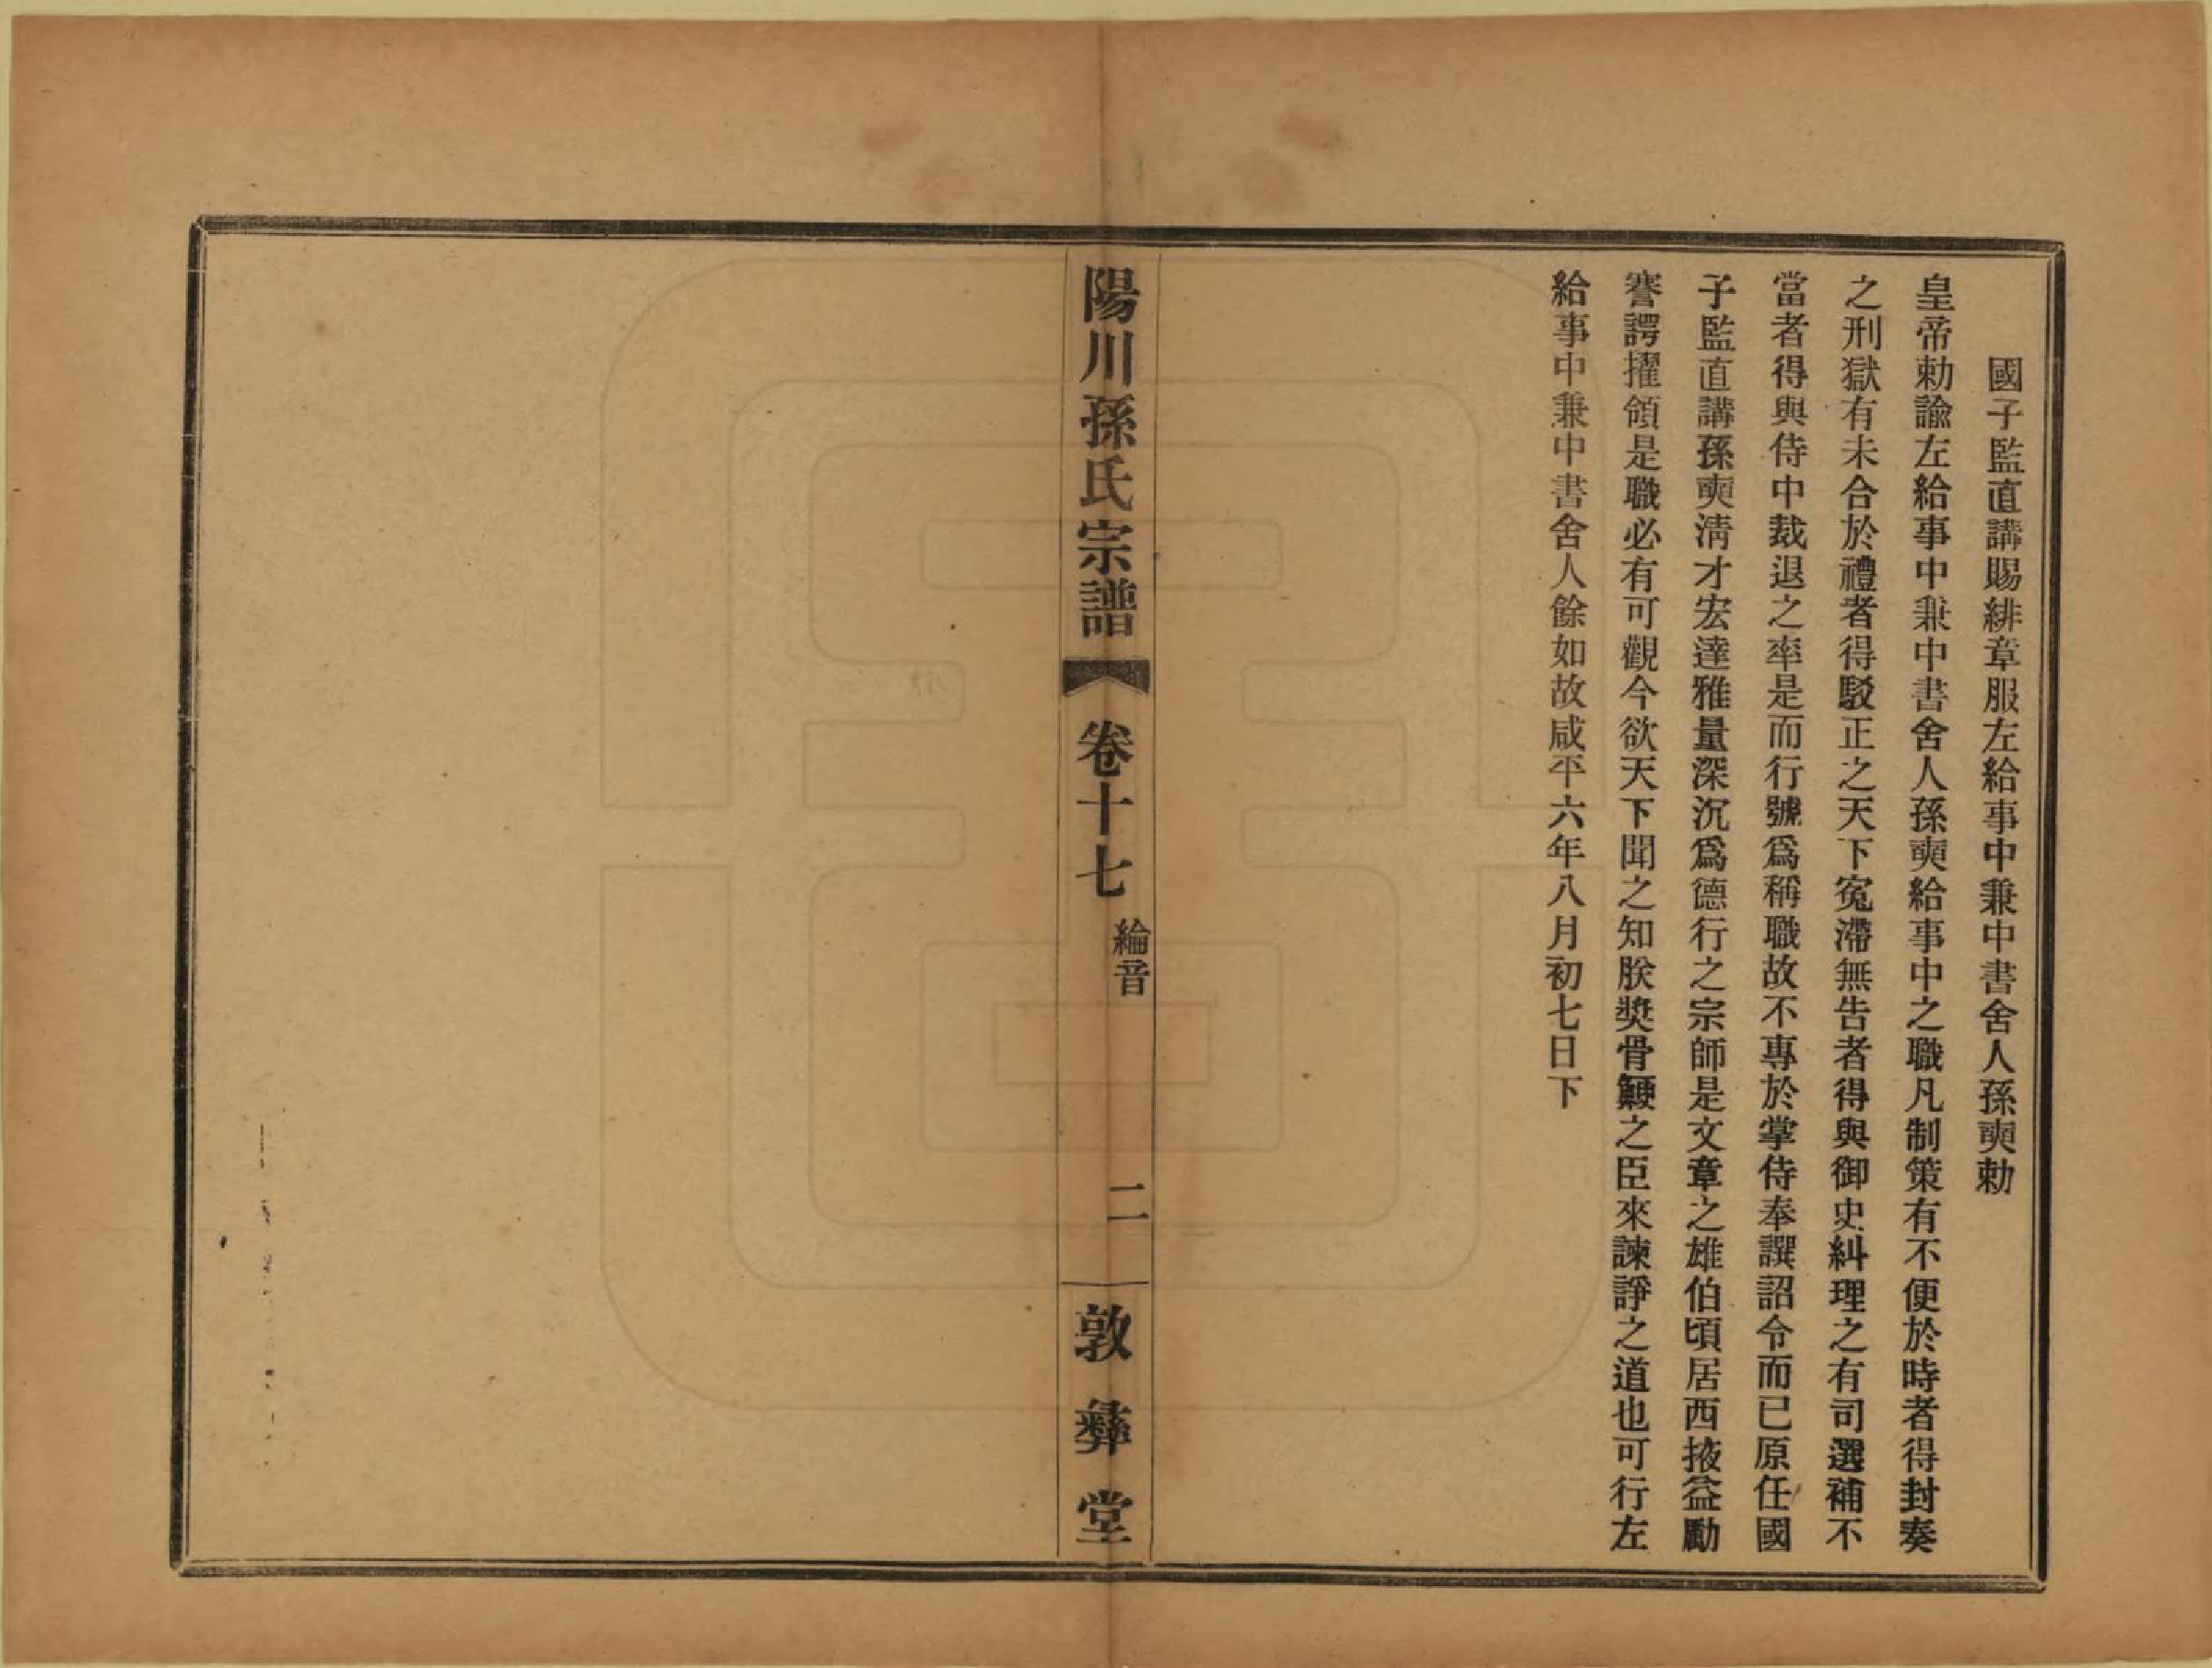 國子監直講賜緋章服左給事中兼中書舍人孫奭勅
皇帝勅諭左給事中兼中書舍人孫奭給事中之職凡制策有不便於時者得封奏
之刑獄有未合於禮者得駁正之天下寃滯無告者得與御史糾理之有司選補不
當者得與侍中裁退之率是而行號爲稱職故不專於掌侍奉譔詔令而已原任國
子監直講孫奭淸才宏達雅量深沉爲德行之宗師是文章之雄伯頃居西掖益勵
謇諤擢領是職必有可觀今欲天下聞之知朕獎骨鯁之臣來諫諍之道也可行左
給事中兼中書舍人餘如故咸平六年八月初七日下
陽川孫氏宗譜 卷十七 綸音 二 敦彝堂